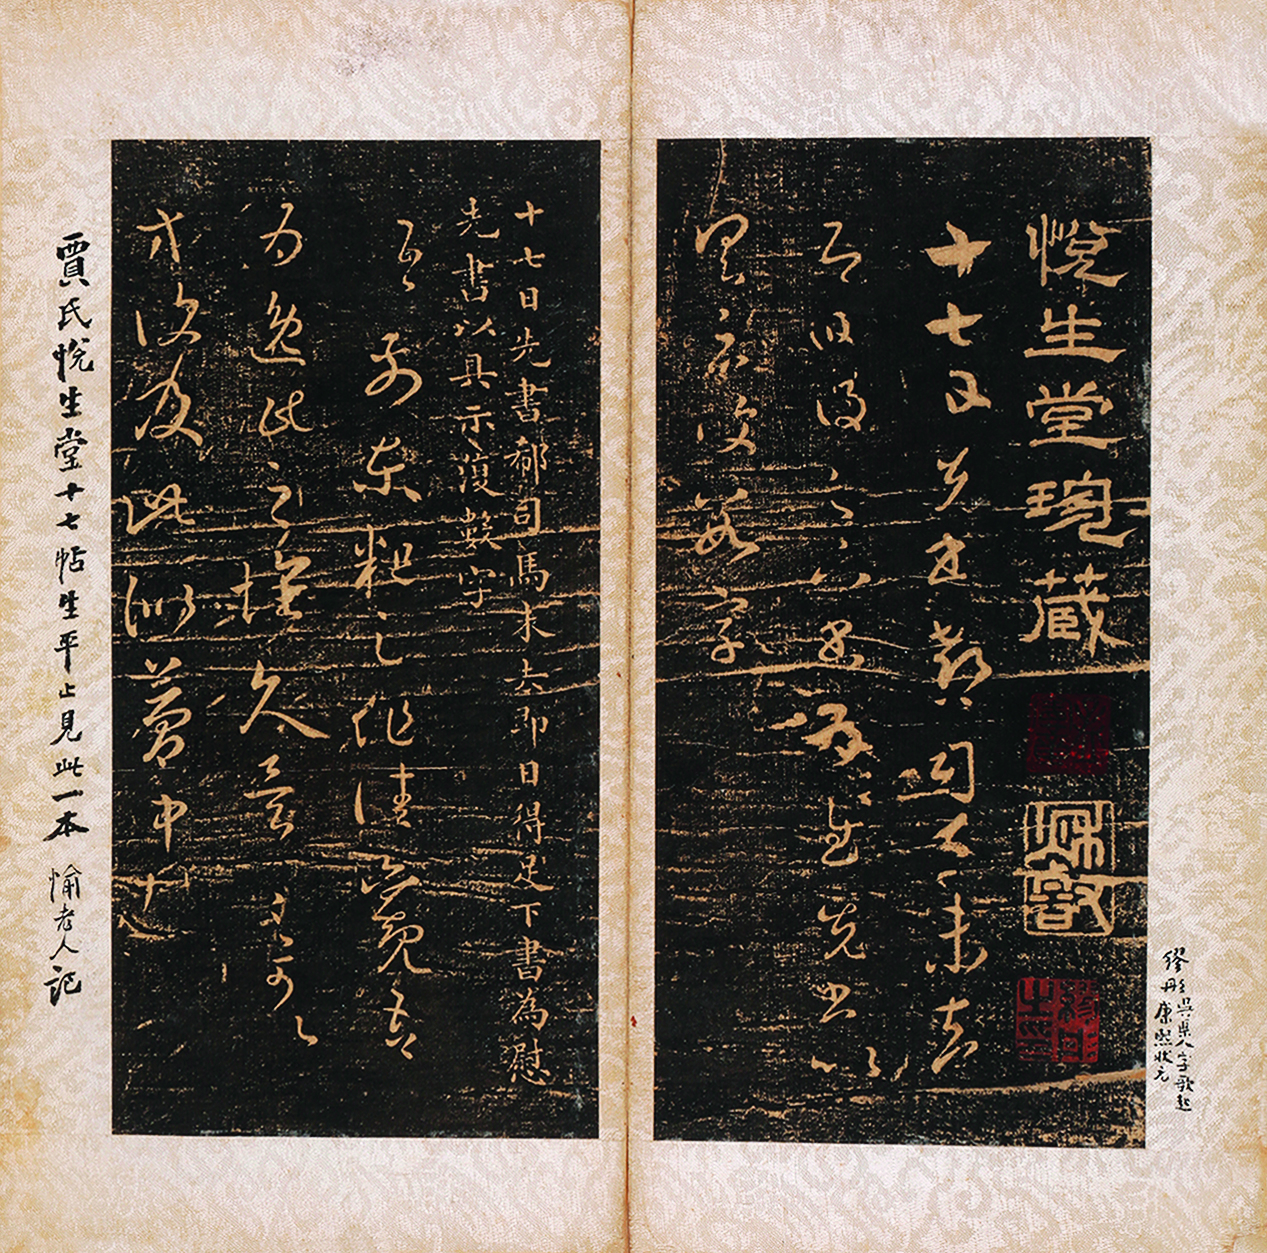 繆彤吳県人字歌起
康熙狀元
悅生堂琬藏
秋壑
繆彤之印
十七日先書郗司馬未去
即日得足下書為慰先書以
具示復數字
十七日先書郗司馬未去即日得足下書為慰
先書以具示復數字
吾前東粗足作佳觀吾
為逸民之懷久矣足下何以
方復及此似夢中語
賈氏悅生堂十七帖生平止見此一本 愉老人記